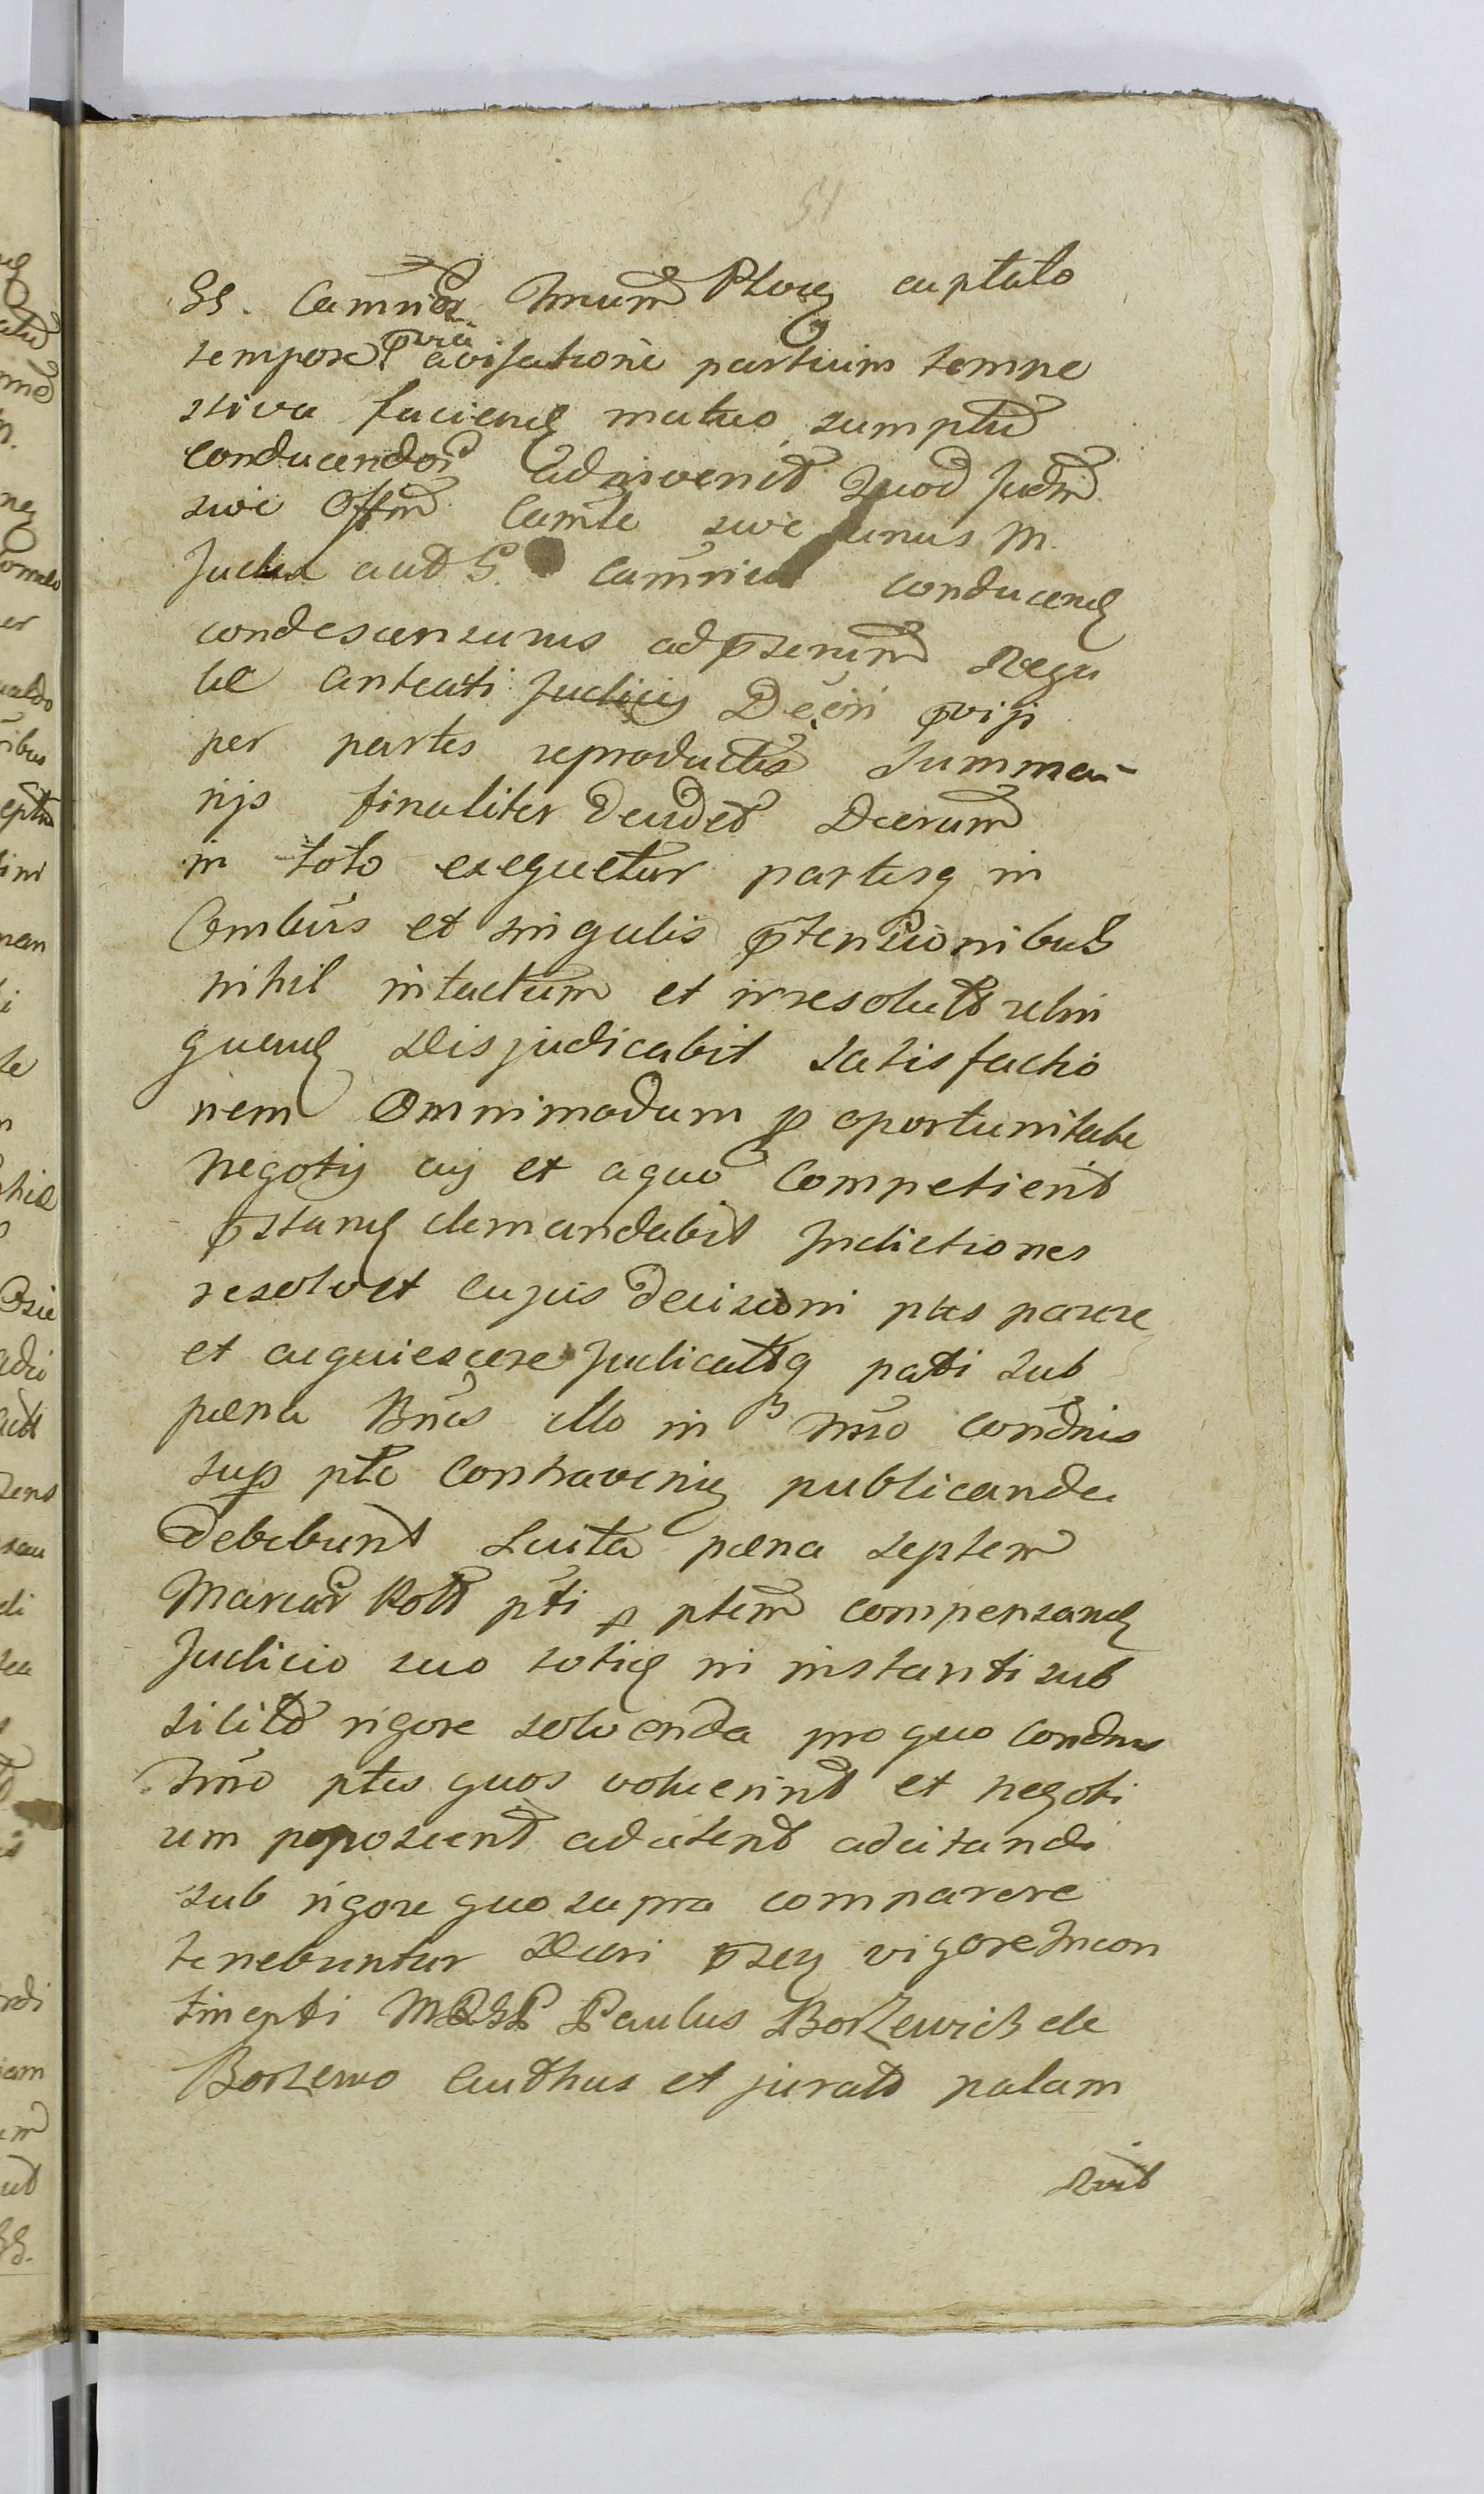 51
GG. Camrior Nrum Plocen captato
tempore prvia avisatione partium tempe
stiva faciend mutuo sumptu
conducendor adinvenit Quod Judm
sive Offm Camle sive unus M.
Judex aut G. Camrius conducend
condescensurus ad prserum Regu
lae anteacti Judicij Decri prvijs
per partes reproductis Summa-
rijs finaliter devdet Decrum
in toto exequetur partesq in
Ombus et singulis prtensionibus
nihil intactum et irresolut relin
quend Disjudicabit satisfactio
nem Omnimodam p oportunitate
negotij cuj et a quo Competierit
prstand demandabit Indictiones
resolvet cujus Decisioni ptes parere
et acquiescere Judicatq pati sub
paena Bnis illo in 3 Nno condnis
sup pte Contraveni publicanda
debebunt Luita paena septem
Marcar Polt pti p ptem compensand
Judicio suo toties in instanti sub
silit rigore solvenda pro quo Condnis
Nno ptes quos voluerint et negoti
um poposcent adcitent adcitandi
sub rigore quo supra comparere
tenebuntur Decri prsen vigore Incon
tinenti MRGP Paulus Borzewicz de
Borzewo Authus et jurat palam
Rnit